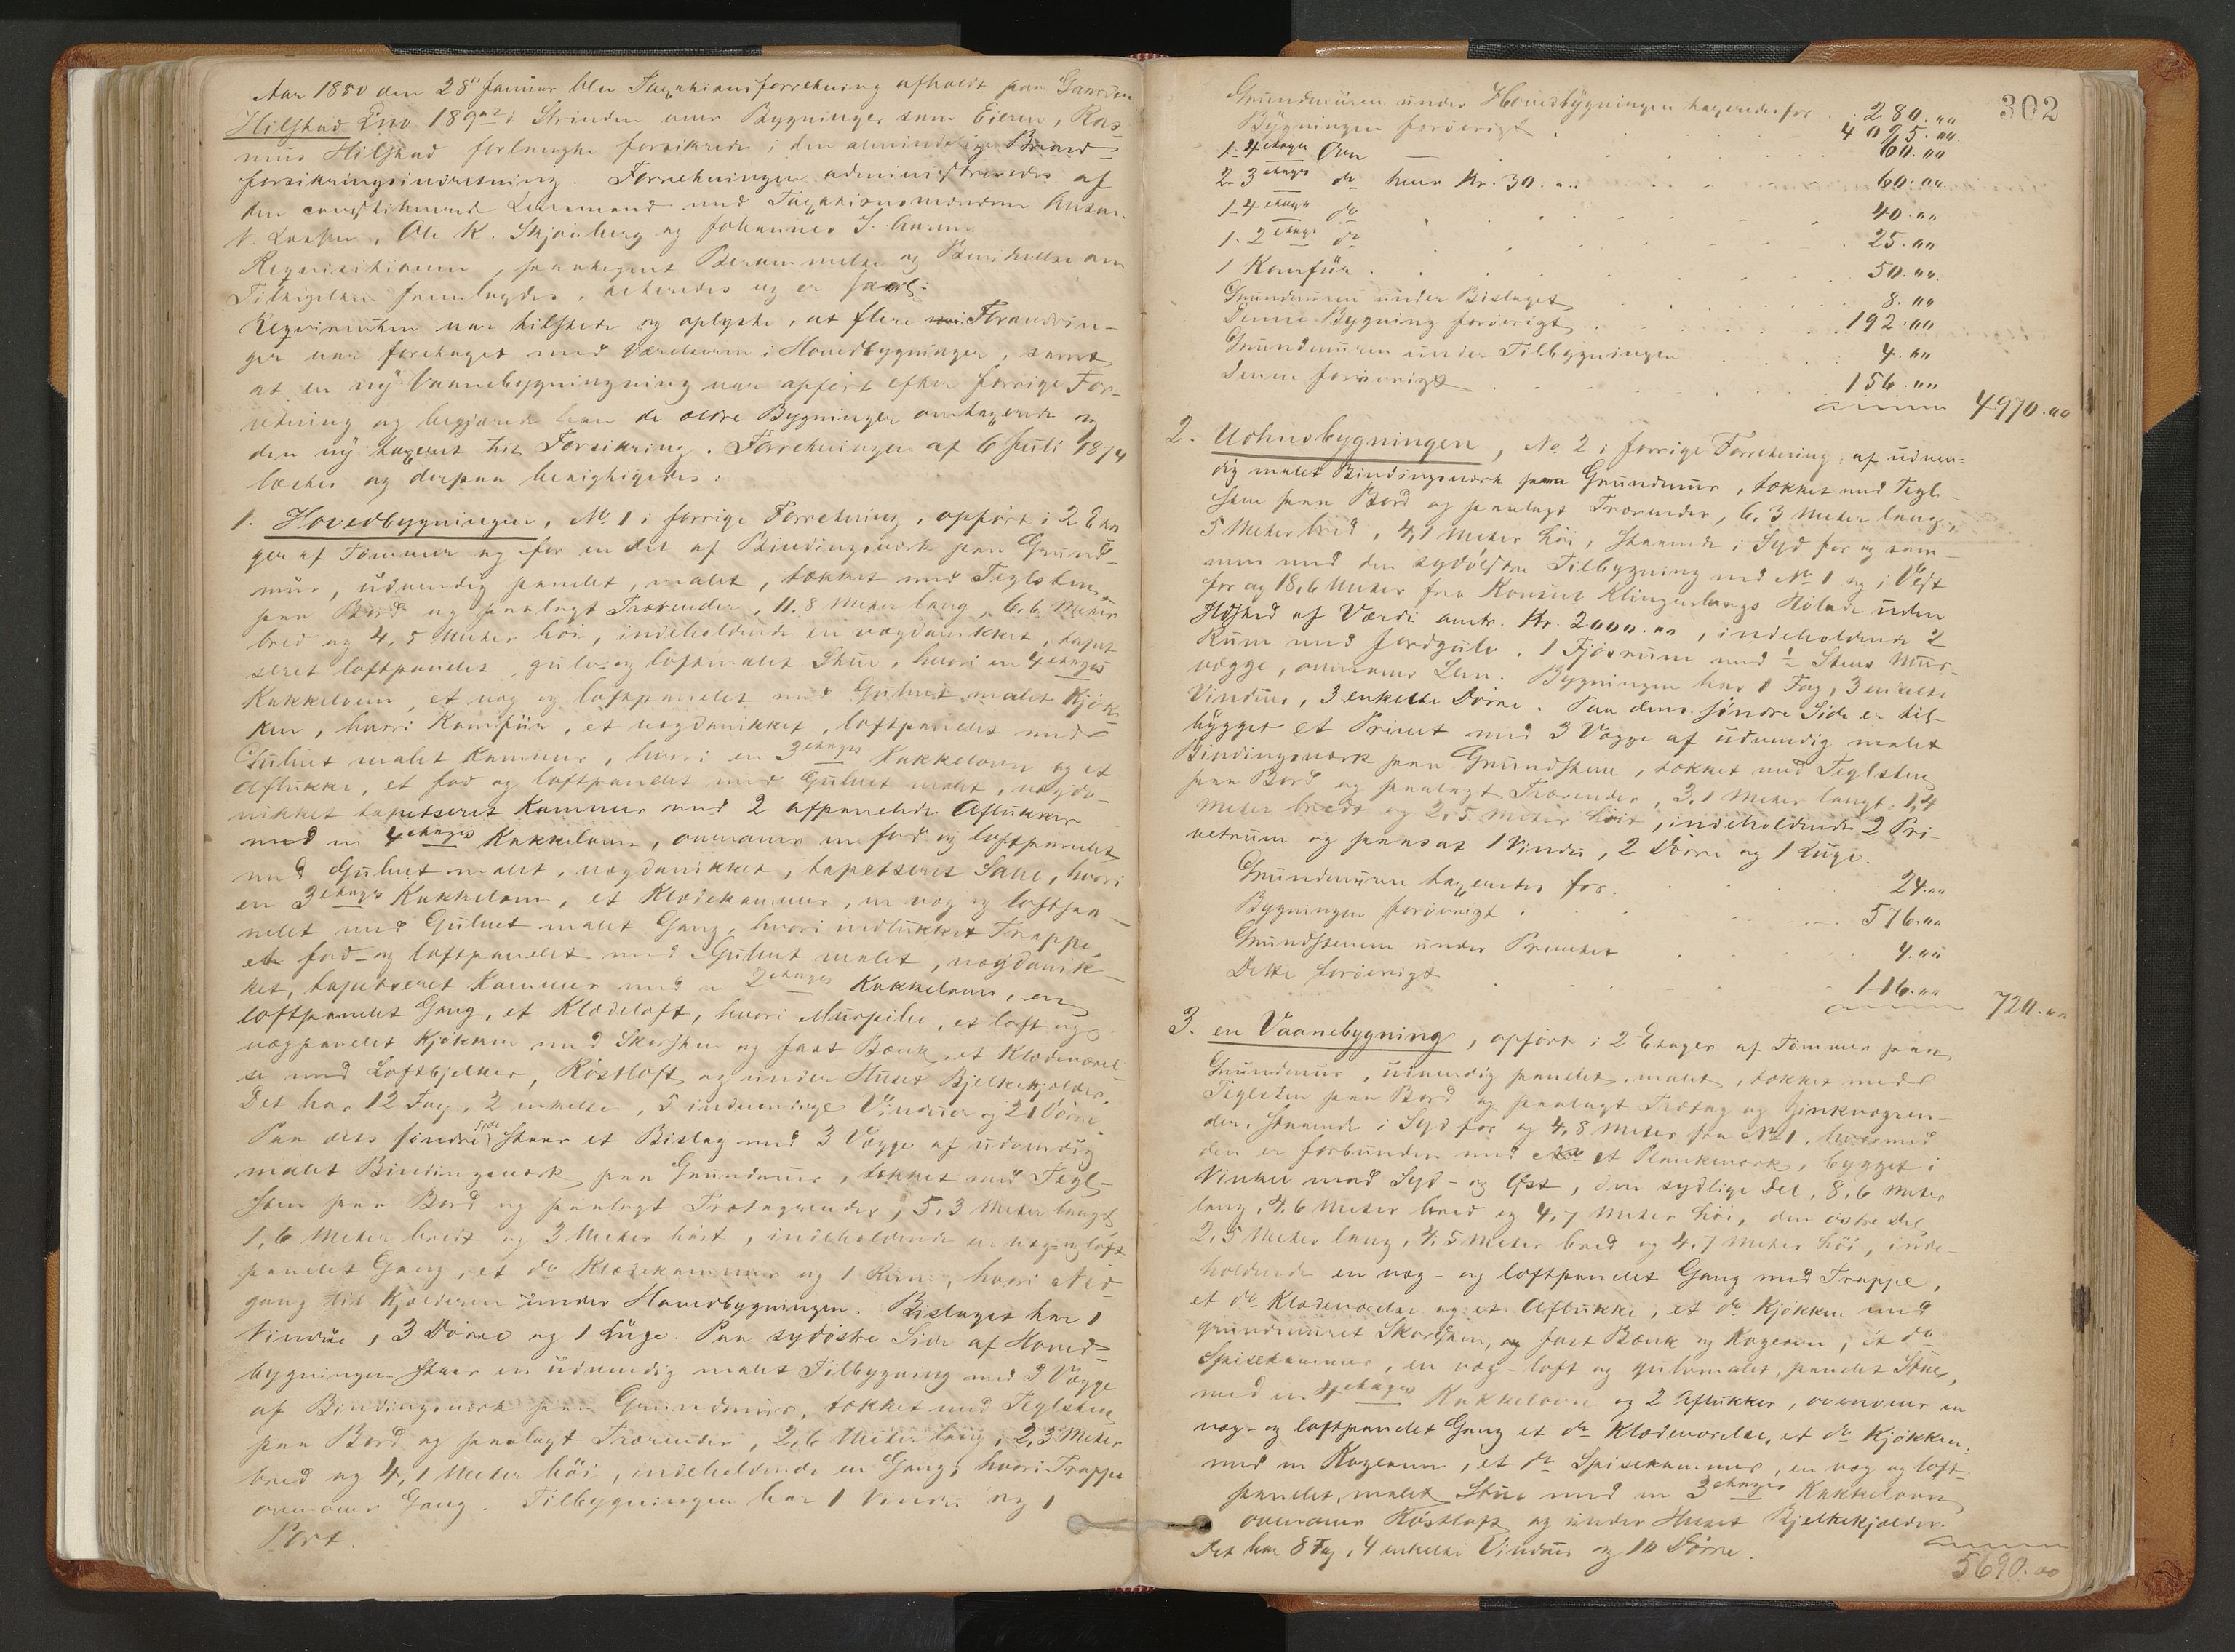 Aar 1880 den 28de Januar blev Taxationsforretning afholdt paa Gaarden
Hilstad Lno 189 a2 i Strinden over Bygninger som Eieren, Ras-
mus Hilstad forlangte forsikrede i den almindelige Brand-
forsikringsindretning. Forretningen administreredes af
den constituerede Lensmand med Taxationsmændene
Ole K. Skjönberg og Johannes J.
Requisitionen, paategnet Berammelse og Bevidnelse om
Tilsigelsen fremlagdes,
Requirenten var tilstede og oplyste, at flere Forandrin-
ger var foretaget med Værelserne i Hovedbygningen, samt
at en ny Vaanebygningning var opført efter forrige For-
retning og begjærede han de ældre Bygninger omtaxerede og
den ny taxeret til Forsikring. Forretningen af 6 Juli 1874
læstes og derpaa besigtigedes:
1. Hovedbygningen, No 1 i forrige Forretning, opført i 2 Eta-
ger af Tømmer og for en Del af Bindingsverk paa Grund-
mur, udvendig panelet, malet, tækket med Teglsten
paa Bord og paalagt Trærender, 11.8 Meter lang, 6.6 Meter
bred og 4,5 Meter høi, indeholdende en vægdanikket, tapet-
seret loftpanelet, gulv- og loftmalet Stue, hvori en 4 etages
Kakkelovn, et væg og loftpanelet med Gulvet malet Kjøk-
ken, hvori Komfür, et vægdanikket, loftpanelet med
Gulvet malet Kammer, hvori en 3 etages Kakkelovn og et
Aflukke, et fod og loftpanelet med Gulvet malet, vægda-
nikket tapetseret Kammer med 2 afpanelede Aflukker
med en 4 etages Kakkelovn, ovenover en fod og loftpanelet
med Gulvet malet, vægdanikket, tapetseret Sal, hvori
en 3 etages Kakkelovn, et Klædekammer, en væg og loftpa-
nelet med Gulvet malet Gang, hvori indlukket Trappe,
et fod- og loftpanelet med Gulvet malet, vægdanik-
ket, tapetseret Kammer med en 2 etages Kakkelovn, en
loftpanelet Gang, et Klædeloft, hvori Murpibe, et loft og
vægpanelet Kjøkken med Skorsten og fast Bænk, et Klædeværel-
se med Loftbjelker, Röstloft og under Huset Bjelkekjælder.
Det har 12 Fag, 2 enkelte, 5 indvendige Vinduer og 21 Dørre.
Paa dets søndre Side staar et Bislag med 3 Vægge af udvendig
malet Bindingsverk paa Grundmur, tækket med Tegl-
sten paa Bord og paalagt Trætagrender, 5,3 Meter langt,
1,6 Meter bredt og 3 Meter høit, indeholdende en væg- og loft-
panelet Gang, et do Klædekammer og 1 Rum, hvori Ned-
gang til Kjælderen under Hovedbygningen. Bislaget har 1
Vindue, 3 Dørre og 1 Lüge. Paa sydøstre Side af Hoved-
bygningen staar en udvendig malet Tilbygning med 3 Vægge
af Bindingsverk paa Grundmur, tækket med Teglsten
paa Bord og paalagt Trærender, 2,6 Meter lang, 2,3 Meter
bred og 4,1 Meter höi, indeholdende en Gang, hvori Trappe
ovenover Gang. Tilbygningen har 1 Vindu og 1
Port.
302
Grundmuren under Hovedbygningen taxeredes for . 280.00
Bygningen forøvrigt . 4025.00
1-4 etages Ovn 60.00
2-3 etages do hver Kr. 30.00 60.00
1-4 etages do 40.00
1-2 etages do 25.00
1 Komfür . 50.00
Grundmuren under Bislaget 8.00
Denne Bygning forøvrigt 192.00
Grundmuren under Tilbygningen 4.00
Denne forøvrigt 156.00
4970.00
2. Udhusbygningen, No 2 i forrige Forretning, af udven-
dig malet Bindingsverk paa Grundmur, tækket med Tegl-
sten paa Bord og paalagt Trærender, 6,3 Meter lang,
5 Meter bred, 4,1 Meter høi, staaende i Syd for og sam-
men med den sydöstre Tilbygning ved No 1 og i Vest
for og 18,6 Meter fra Konsul Klingenbergs Hölade uden
Ildsted af Værdi omtr. Kr. 2000.00, indeholdende 2
Rum med Jordgulv, 1 Fjøsrum med ½ Stens Mur-
vægge, ovenover Lem. Bygningen har 1 Fag, 3 enkelte
Vinduer, 3 enkelte Dørre. Paa dens søndre Side er til-
bygget et Privet med 3 Vægge af udvendig malet
Bindingsverk paa Grundstene, tækket med Teglsten
paa Bord og paalagt Trærender, 3,1 Meter langt, 1,4
Meter bredt og 2,5 Meter höit, indeholdende 2 Pri-
vetrum og paasat 1 Vindu, 2 Dørre og 1 Luge.
Grundmuren taxeredes for . 24.00
Bygningen forøvrigt . 576.00
Grundstenene under Privetet 4.00
Dette forøvrigt 116.00
720.00
3. en Vaanebygning, opført i 2 Etager af Tømmer paa
Grundmur, udvendig panelet, malet, tækket med
Teglsten paa Bord og paalagt Trætag og Zinkvagren-
der, staaende i Syd for og 4,8 Meter fra No 1, hvormed
den er forbunden med et Plankeverk, bygget i
Vinkel mod Syd- og Øst, den sydlige Del, 8,6 Meter
lang, 4,6 Meter bred og 4,7 Meter höi, den østre Del
2,5 Meter lang, 4,5 Meter bred og 4,7 Meter höi, inde-
holdende en væg- og loftpanelet Gang med Trappe,
et do Klædeværelse og et Aflukke, et do Kjøkken med
grundmuret Skorsten, og fast Bænk og Kogeovn, et do
Spisekammer, en væg- loft og gulvmalet, panelet Stue,
med en 4 etages Kakkelovn og 2 Aflukker, ovenover en
væg- og loftpanelet Gang et do Klædeværelse, et do Kjøkken,
med en Kogeovn, et do Spisekammer, en væg og loft-
panelet, malet Stue med en 3 etages Kakkelovn
ovenover Röstloft og under Huset Bjelkekjælder.
Det har 8 Fag, 4 enkelte Vinduer og 10 Dørre.
5690.00